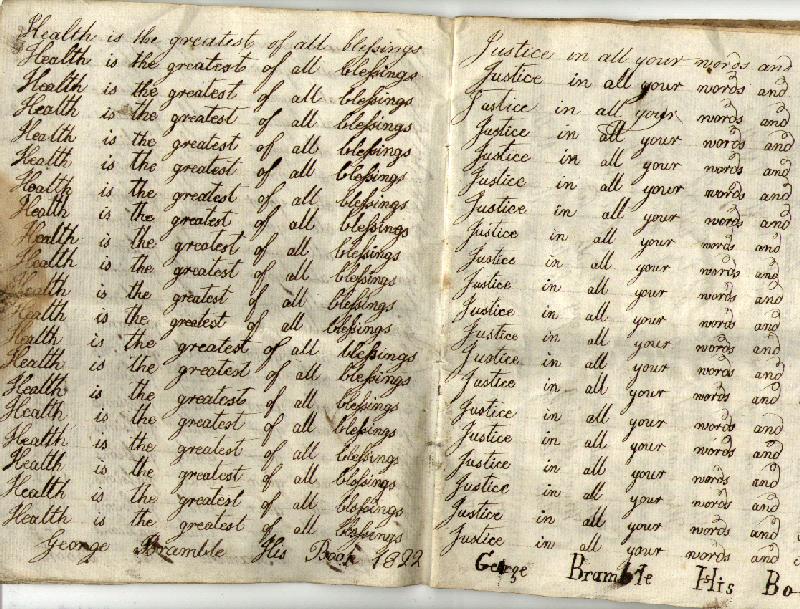 Health is the greatest of all bleſsings
Health is the greatest of all bleſsings
Health is the greatest of all bleſsings
Health is the greatest of all bleſsings
Health is the greatest of all bleſsings
Health is the greatest of all bleſsings
Health is the greatest of all bleſsings
Health is the greatest of all bleſsings
Health is the greatest of all bleſsings
Health is the greatest of all bleſsings
Health is the greatest of all bleſsings
Health is the greatest of all bleſsings
Health is the greatest of all bleſsings
Health is the greatest of all bleſsings
Health is the greatest of all bleſsings
Health is the greatest of all bleſsings
Health is the greatest of all bleſsings
Health is the greatest of all bleſsings
Health is the greatest of all bleſsings
Health is the greatest of all bleſsings
George Bramble His Book 1822
Justice in all your words and
Justice in all your words and
Justice in all your words and
Justice in all your words and
Justice in all your words and
Justice in all your words and
Justice in all your words and
Justice in all your words and
Justice in all your words and
Justice in all your words and
Justice in all your words and
Justice in all your words and
Justice in all your words and
Justice in all your words and
Justice in all your words and
Justice in all your words and
Justice in all your words and
Justice in all your words and
Justice in all your words and
Justice in all your words and
George Bramble His Bo